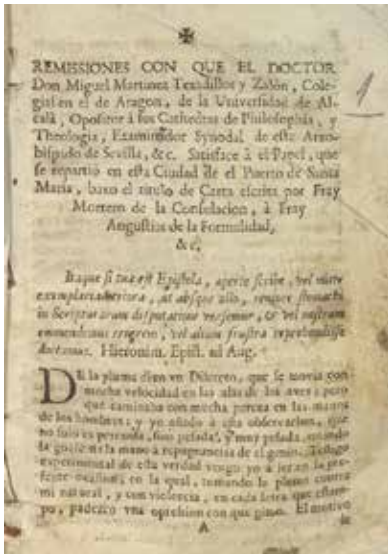 REMISSIONES CON QUE EL DOCTOR
Don Miguel Martinez Texadillos y Zalòn, Cole-
gial en el de Aragon, de la Universidad de Al-
calà, Opositor à sus Cathedras de Philosophia, y
Theologia, Examinador Synodal de este Arzo-
bispado de Sevilla, &c. Satisface à el Papel, que
se repartiò en esta Ciudad de el Puerto de Santa
Maria, baxo el titulo de Carta escrita por Fray
Mortero de la Consolacion, à Fray
Angustias de la Formalidad,
&c.
Itaque si tua est Epistola, aperte scribe, vel mitte
exemplaria veriora, ut absque ullo, stomachi
in Scripturarum disputatione versemur, & vel nostrum
emendemus errorem, vel alium frustra reprehendisse
doceamus. Hieronim. Epist. ad Aug.
DE la pluma dixo vn Discreto, que se movia con
mucha velocidad en las alas de las aves; pero
que caminaba con mucha pereza en las manos
de los hombres; y yo añado à esta observacion, que
no solo es perezosa, sino pesada, y muy pesada, quando
la mano à repugnancia de el genio. Testigo
experimental de esta verdad vengo yo à ser en la pre-
sente ocasion; en la qual, tomando la pluma contra
mi natural, y con violencia, en cada letra que estam-
po, padezco vna opresion con que gimo. El motivo
A
de
1